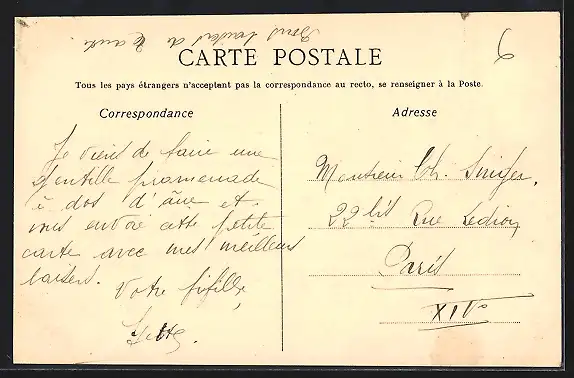 Bons baisers de
CARTE POSTALE
Tous les pays étrangers n'acceptent pas la correspondance au recto, se renseigner à la Poste.
Correspondance
Adresse
Je viens de faire une
gentille promenade
à dos d'âne et
vous envoie cette petite
carte avec mes meilleurs
baisers.
Votre fifille,
Monsieur Ch. Singer,
22 bis Rue Ledion
Paris
XIVe